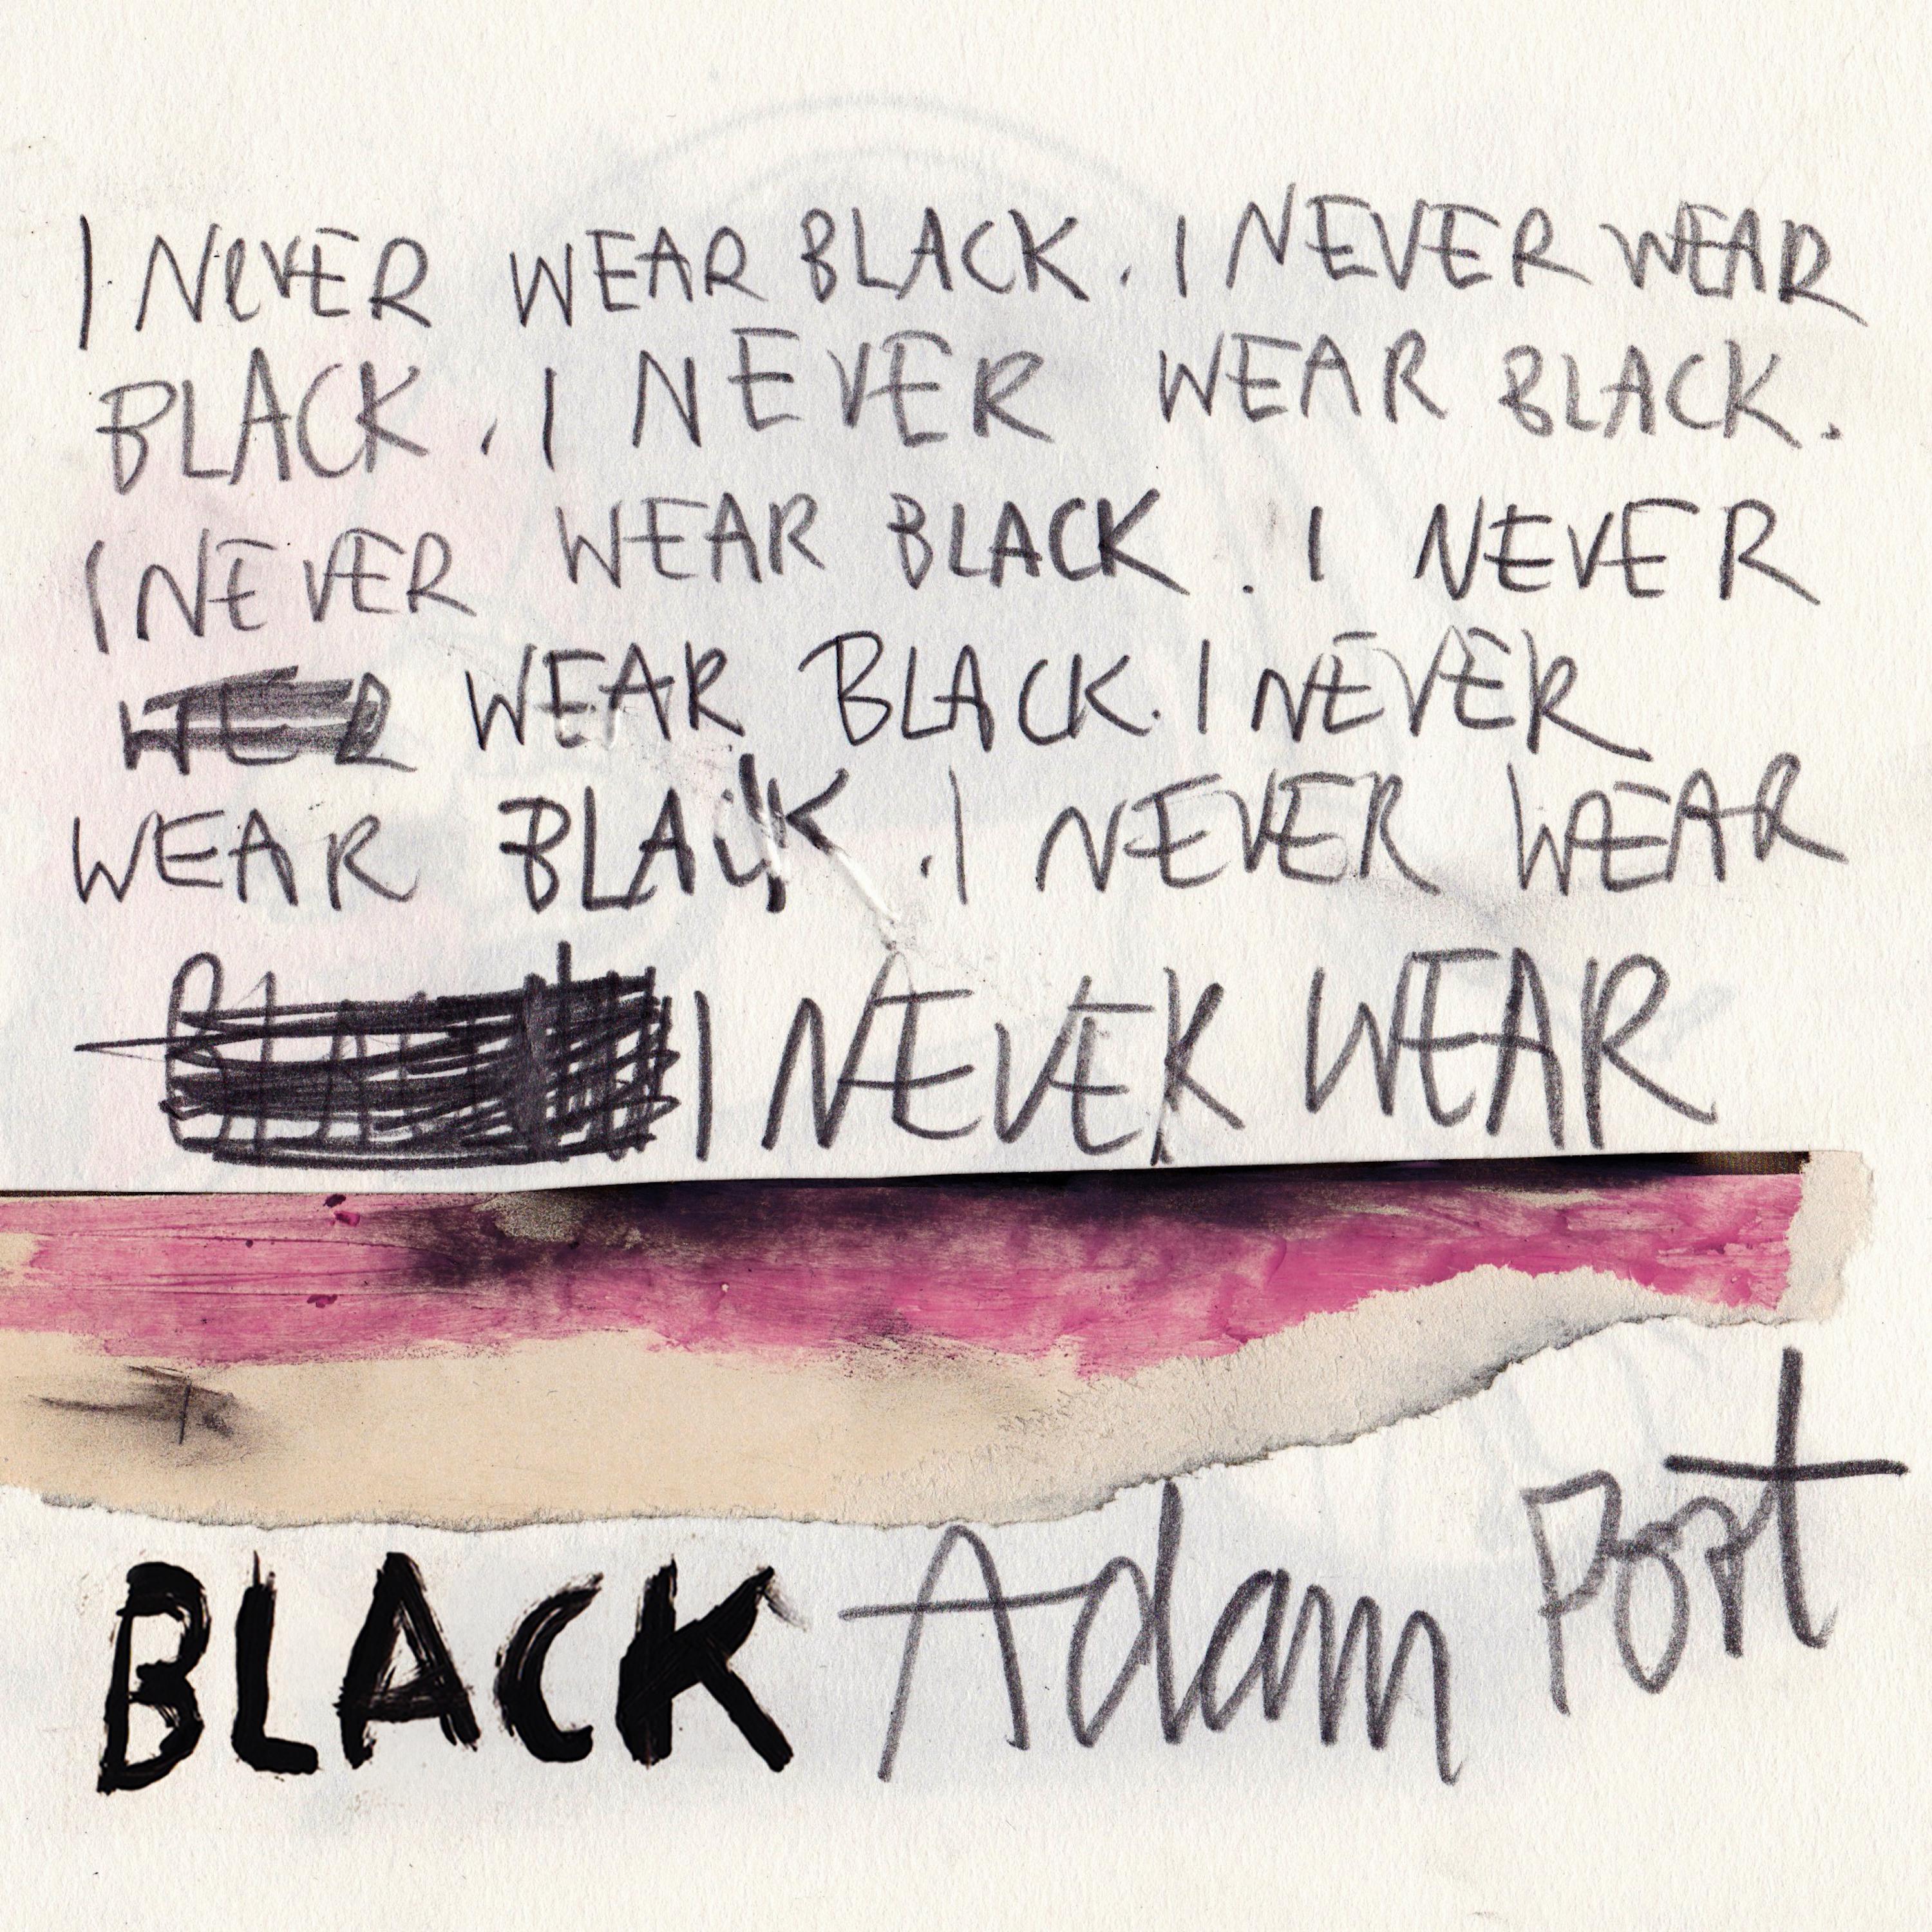 I NeVER WEAR BLACK. I NEVER WEAR
BLACK. I NEVER WEAR BLACK.
I NEVER WEAR BLACK. I NEVER
WEAR BLACK. I NEVER
WEAR BLACK. I NEVER WEAR
I NEVER WEAR
BLACK Adam Port